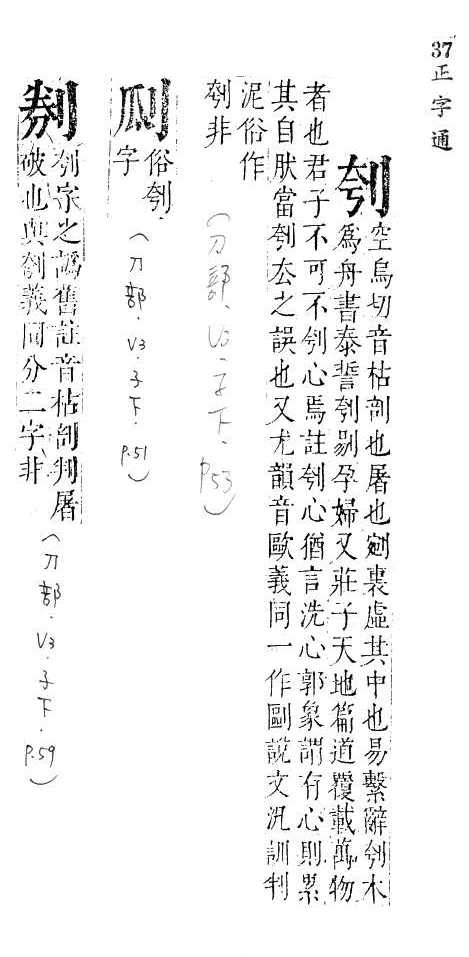 37 正字通
刳 空烏切音枯剖也屠也剜裏虛其中也易繫辭刳木
爲舟書泰誓刳剔孕婦又莊子天地篇道覆載萬物
者也君子不可不刳心焉註刳心猶言洗心郭象謂有心則累
其自肰當刳厺之誤也又尤韻音歐義同一作剾說文汎訓判
泥俗作
刳非
(刀部.V3.子下.P.53)
𠛒 俗刳
字
(刀部.V3.子下.P.51)
刳字之譌舊註音枯剖判屠
破也與刳義同分二字非
(刀部.V3.子下.P.59)